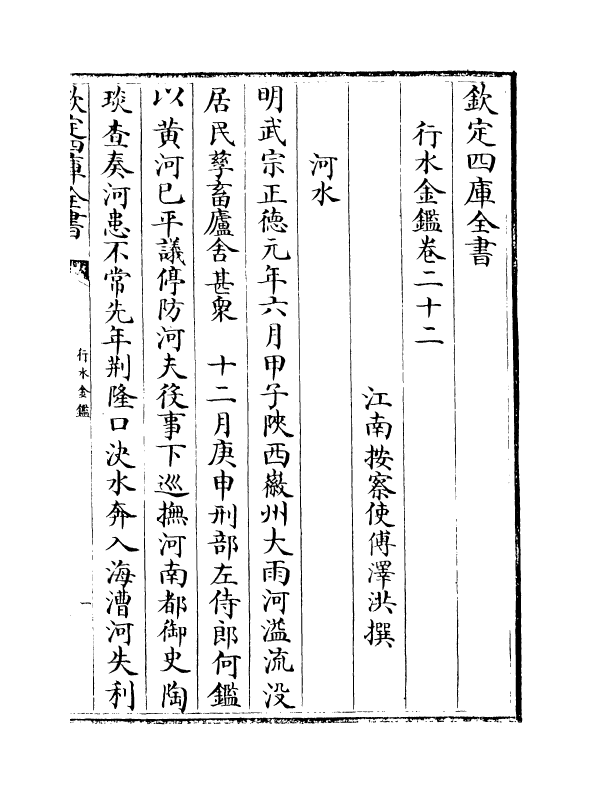 欽定四庫全書
行水金鑑卷二十二
江南按察使傅澤洪撰
河水
明武宗正德元年六月甲子陝西徽州大雨河溢流沒
居民孳畜廬舍甚衆　十二月庚申刑部左侍郎何鑑
以黃河已平議停防河夫役事下巡撫河南都御史陶
琰查奏河患不常先年荆隆口決水奔入海漕河失利
欽定四庫全書
行水金鑑
一